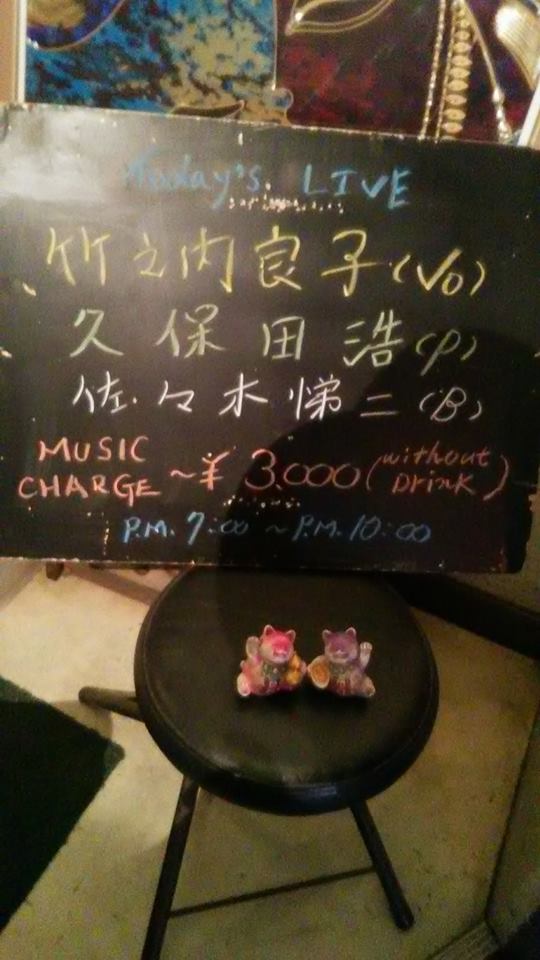 Today's. LIVE
竹之内良子(Vo)
久保田浩(P)
佐々木悌二(B)
MUSIC CHARGE ~¥3.000(without Drink)
P.M. 7:00 ~ P.M. 10:00